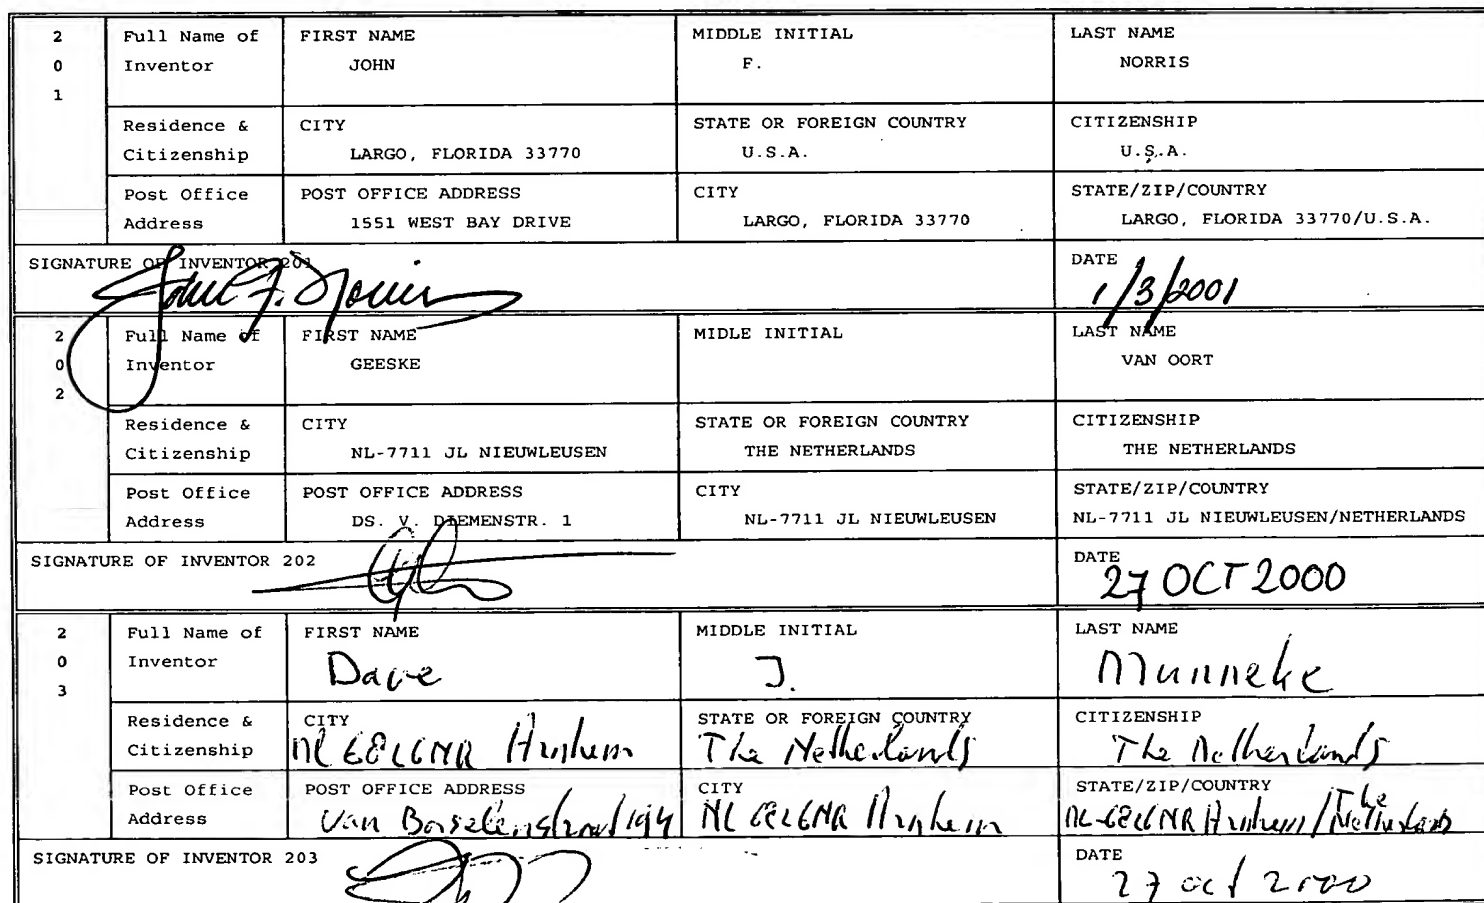 201 Full Name of Inventor FIRST NAME JOHN MIDDLE INITIAL F. LAST NAME NORRIS
Residence & Citizenship CITY LARGO, FLORIDA 33770 STATE OR FOREIGN COUNTRY U.S.A. CITIZENSHIP U.S.A.
Post Office Address POST OFFICE ADDRESS 1551 WEST BAY DRIVE CITY LARGO, FLORIDA 33770 STATE/ZIP/COUNTRY LARGO, FLORIDA 33770/U.S.A.
SIGNATURE OF INVENTOR 201 John F. Norris DATE 1/3/2001
202 Full Name of Inventor FIRST NAME GEESKE MIDLE INITIAL LAST NAME VAN OORT
Residence & Citizenship CITY NL-7711 JL NIEUWLEUSEN STATE OR FOREIGN COUNTRY THE NETHERLANDS CITIZENSHIP THE NETHERLANDS
Post Office Address POST OFFICE ADDRESS DS. V. DIEMENSTR. 1 CITY NL-7711 JL NIEUWLEUSEN STATE/ZIP/COUNTRY NL-7711 JL NIEUWLEUSEN/NETHERLANDS
SIGNATURE OF INVENTOR 202 DATE 27 OCT 2000
203 Full Name of Inventor FIRST NAME Dave MIDDLE INITIAL J. LAST NAME Munneke
Residence & Citizenship CITY NL Arnhem STATE OR FOREIGN COUNTRY The Netherlands CITIZENSHIP The Netherlands
Post Office Address POST OFFICE ADDRESS Van CITY NL Arnhem STATE/ZIP/COUNTRY Arnhem/The Netherlands
SIGNATURE OF INVENTOR 203 DATE 27 oct 2000